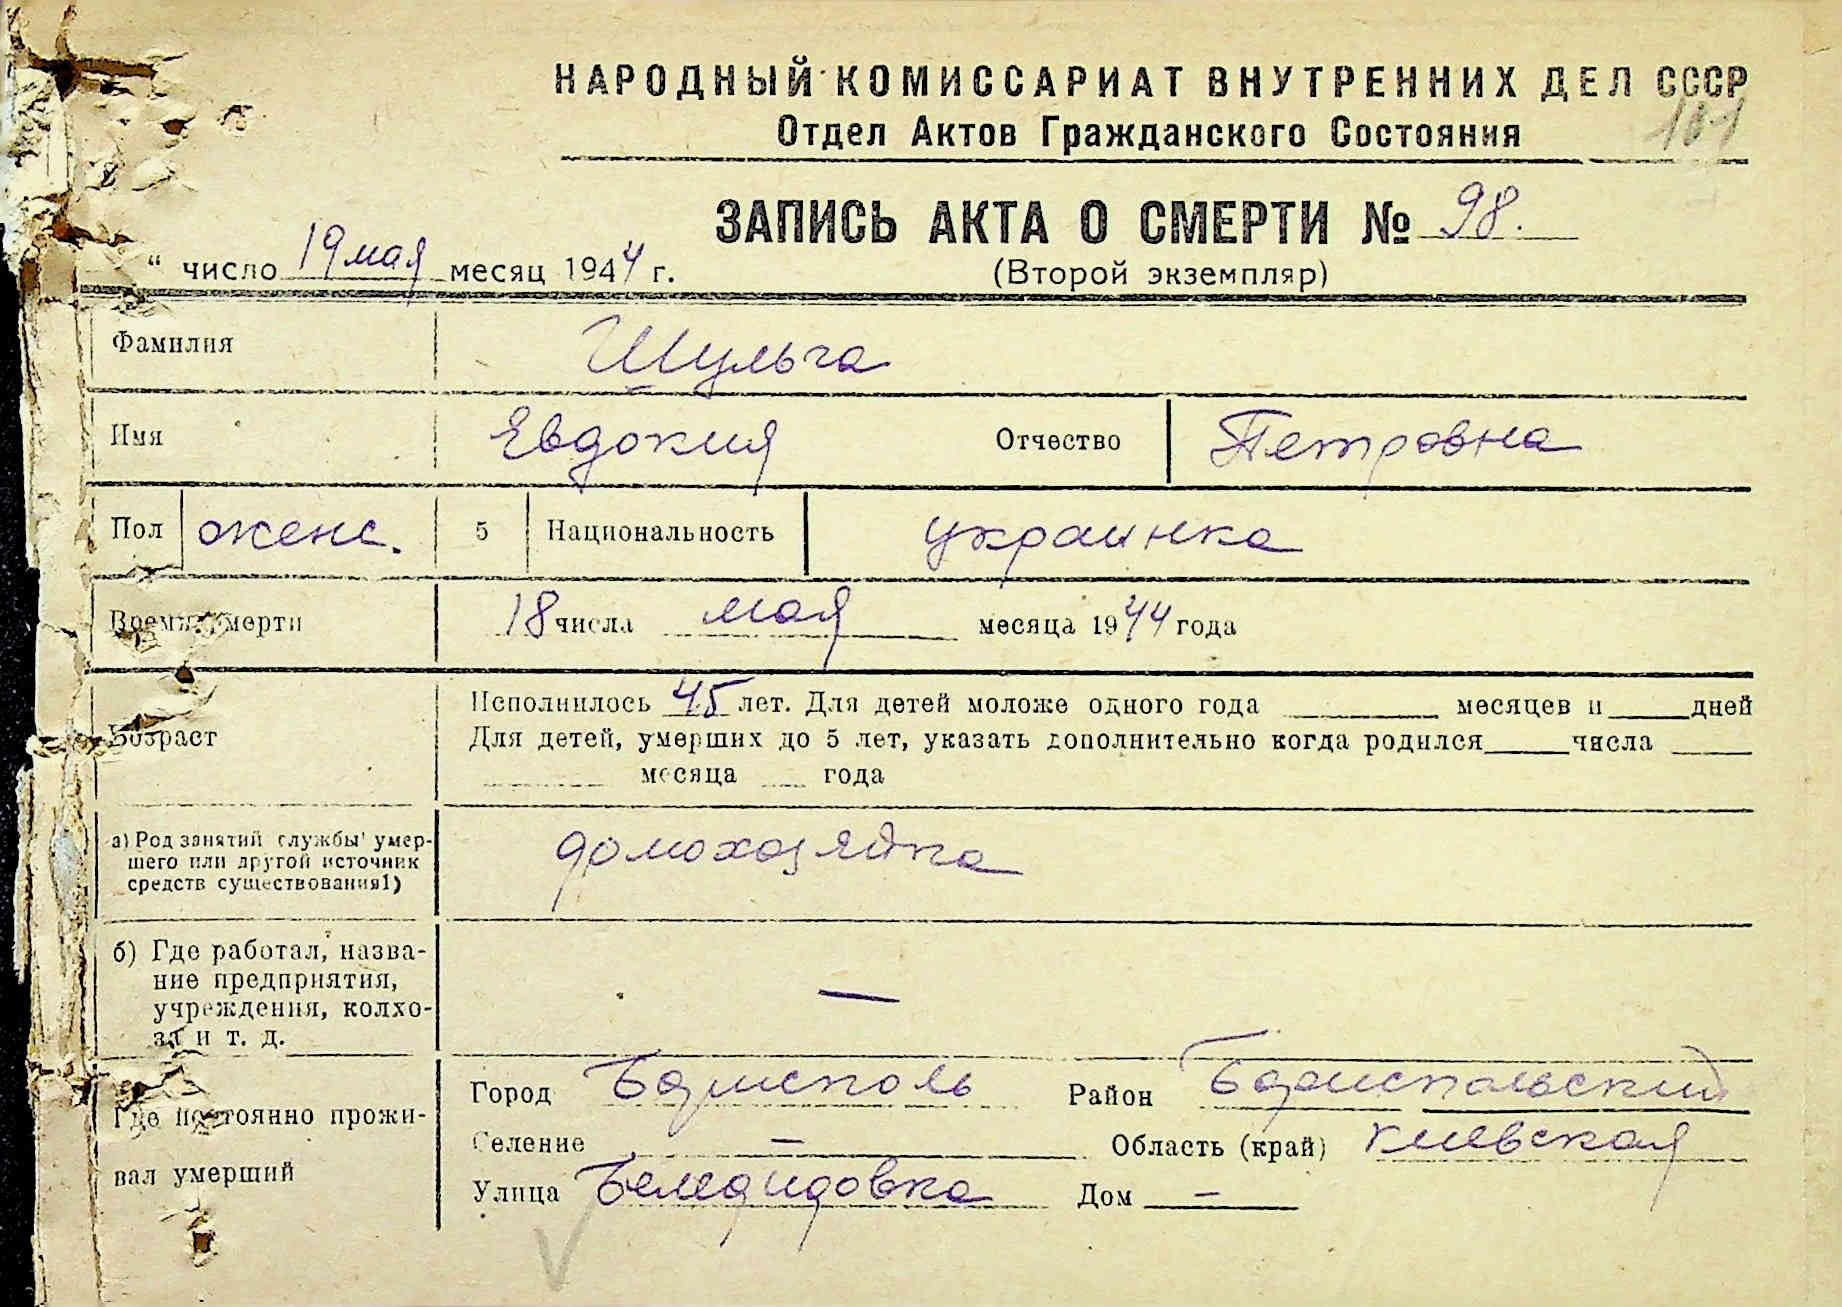 НАРОДНЫЙ КОМИССАРИАТ ВНУТРЕННИХ ДЕЛ СССР
Отдел Актов Гражданского Состояния
101
ЗАПИСЬ АКТА О СМЕРТИ № 98.
“ число 19 мая месяц 1944 г.
(Второй экземпляр)
Фамилия Шульга
Имя Евдокия Отчество Петровна
Пол женс. 5 Национальность украинка
Время смерти 18 числа мая месяца 1944 года
Возраст
Исполнилось 45 лет. Для детей моложе одного года месяцев и дней
Для детей, умерших до 5 лет, указать дополнительно когда родился числа
месяца года
а) Род занятий службы умер-
шего или другой источник
средств существования1)
домохозяйка
б) Где работал, назва-
ние предприятия,
учреждения, колхо-
за и т. д.
—
Где постоянно прожи-
вал умерший
Город Борисполь Район Бориспольский
Селение — Область (край) Киевская
Улица Дом —